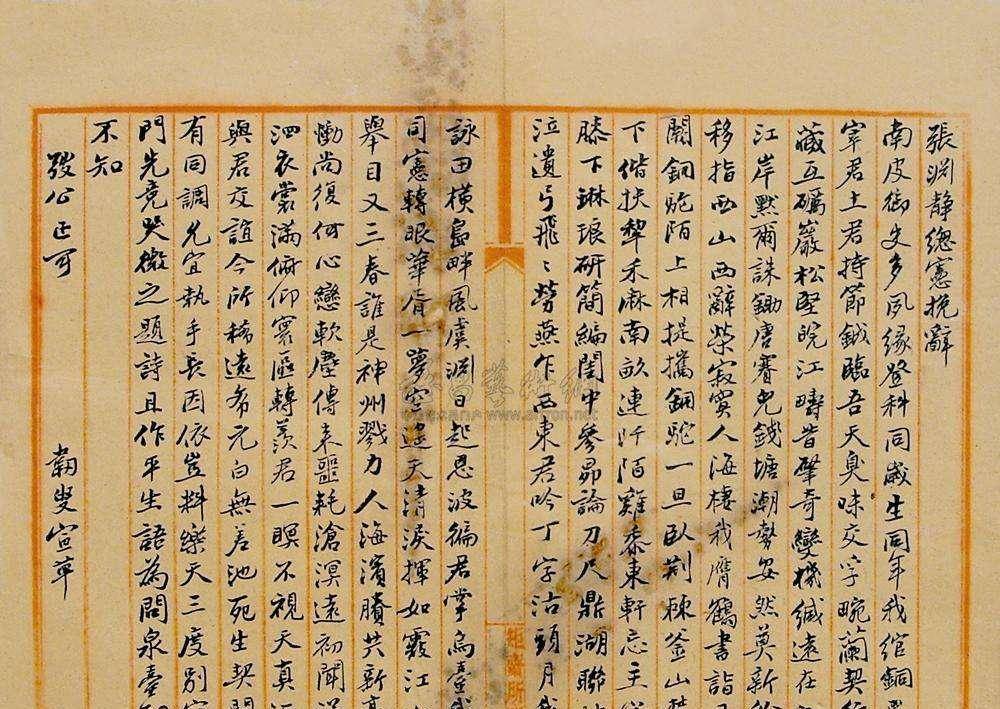 張淵靜總憲挽辭
南皮御史多夙緣登科同歲生同年我綰銅
宰君土君持節鉞臨吾天臭味交字畹蘭契
藏互礪巖松堅皖江疇昔肇奇變機緘遠在
江岸默爾誅鋤唐賽兒錢塘潮勢妥然奠新
移指西山西辭榮寂寞人海棲我膺鶴書詣
闕銅駝陌上相提攜銅駝一旦臥荆棘釜山
下偕扶犂禾麻南畝連阡陌雞黍東軒忘主
膝下琳琅研簡編閨中參昴論刀尺鼎湖聯
泣遺弓飛〻勞燕乍西東君吟丁字沽頭月我
詠田橫島畔風虞淵日起恩波徧君掌烏臺我
同憲轉眼華胥一夢空遙天清淚揮如霰江
舉目又三春誰是神州戮力人海濱賸共新亭
慟尚復何心戀軟塵傳來噩耗滄溟遠初聞
泗衣裳滿俯仰寰區轉羨君一瞑不視天真
與君交誼今所稀遠希元白無差池死生契闊
有同調允宜執手長因依豈料樂天三度別
門先竟哭微之題詩且作平生語為問泉臺知
不知
弢公正可
韌叟宣草
www.artron.net